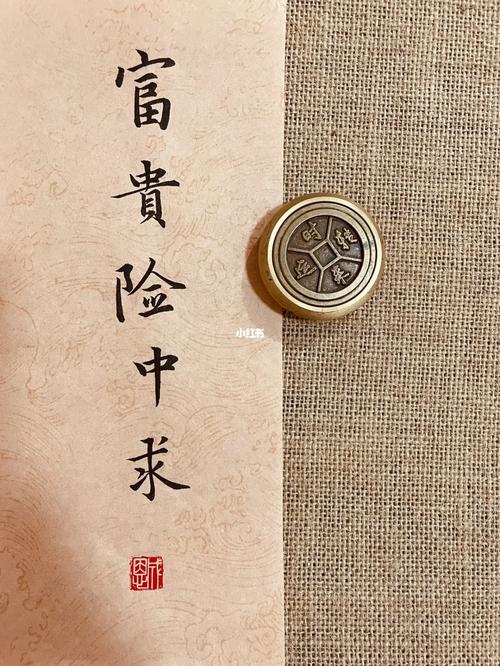 富貴险中求
小红书